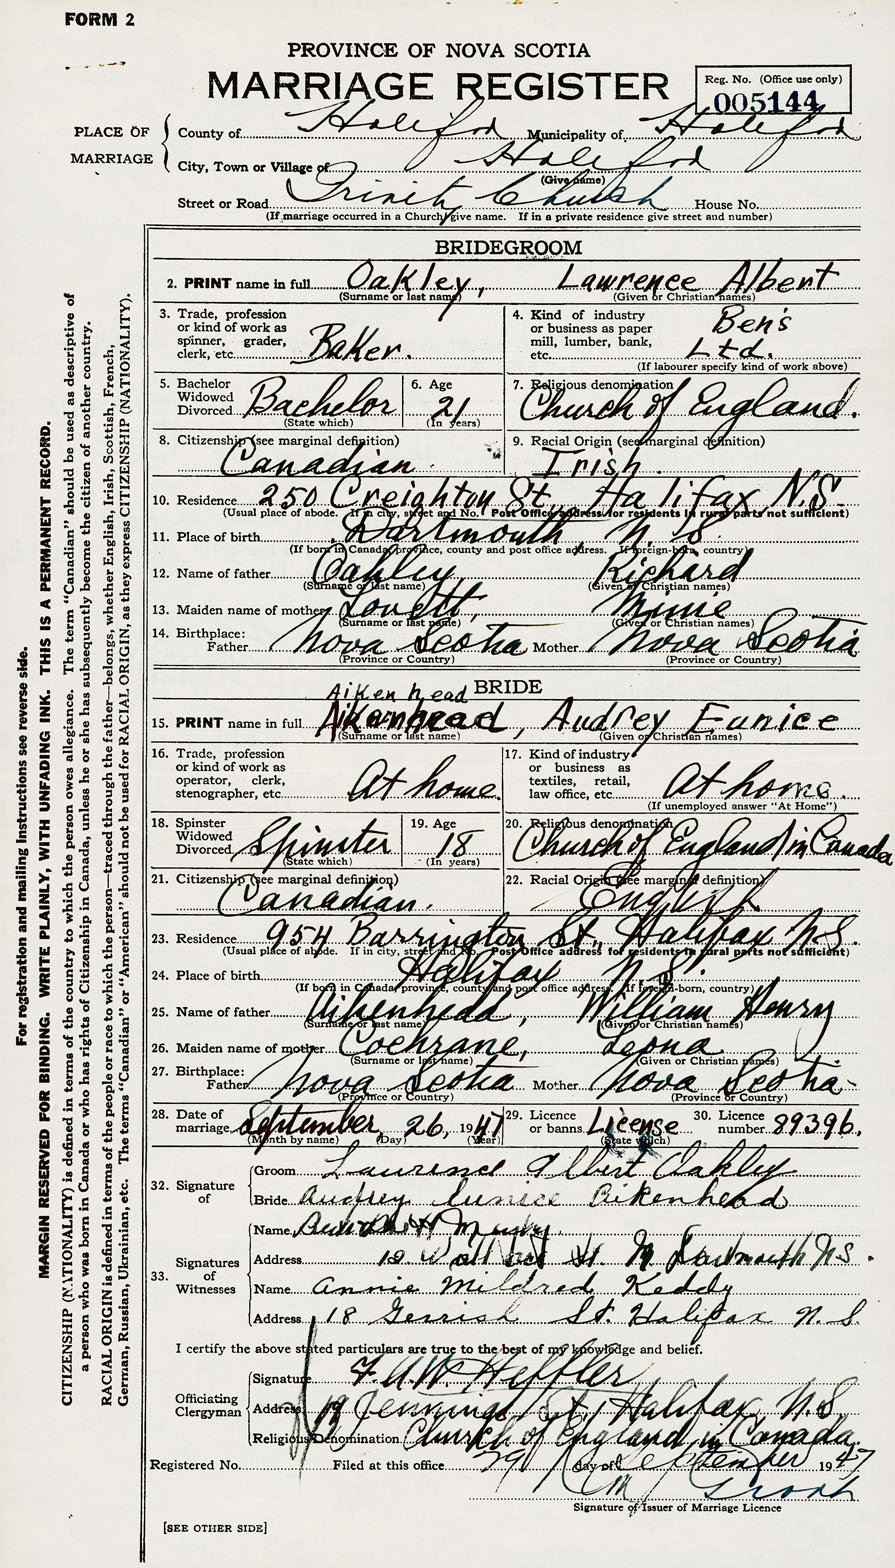 FORM 2
PROVINCE OF NOVA SCOTIA
MARRIAGE REGISTER
Reg. No. (Office use only)
005144
PLACE OF MARRIAGE
County of Halifax Municipality of Halifax
City, Town or Village of Halifax
(Give name)
Street or Road Trinity Church House No.
(If marriage occurred in a Church give name. If in a private residence give street and number)
BRIDEGROOM
2. PRINT name in full Oakley, Lawrence Albert
(Surname or last name) (Given or Christian names)
3. Trade, profession or kind of work as spinner, grader, clerk, etc. Baker.
4. Kind of industry or business as paper mill, lumber, bank, etc. Ben's Ltd.
(If labourer specify kind of work above)
5. Bachelor Widowed Divorced Bachelor
(State which)
6. Age 21
(In years)
7. Religious denomination Church of England.
8. Citizenship (see marginal definition) Canadian
9. Racial Origin (see marginal definition) Irish.
10. Residence 250 Creighton St., Halifax, N.S.
(Usual place of abode. If in city, street and No. Post Office address for residents in rural parts not sufficient)
11. Place of birth Dartmouth, N.S.
(If born in Canada, province, county and post office address. If foreign-born, country)
12. Name of father Oakley Richard
(Surname or last name) (Given or Christian names)
13. Maiden name of mother Lovett, Minie
(Surname or last name) (Given or Christian names)
14. Birthplace:
Father Nova Scotia Mother Nova Scotia
(Province or Country) (Province or Country)
BRIDE
Aikenhead
15. PRINT name in full Aikenhead, Audrey Eunice
(Surname or last name) (Given or Christian names)
16. Trade, profession or kind of work as operator, clerk, stenographer, etc. At home.
17. Kind of industry or business as textiles, retail, law office, etc. At home.
(If unemployed answer "At Home")
18. Spinster Widowed Divorced Spinster
(State which)
19. Age 18
(In years)
20. Religious denomination Church of England in Canada
21. Citizenship (see marginal definition) Canadian.
22. Racial Origin (see marginal definition) English
23. Residence 954 Barrington St., Halifax N.S.
(Usual place of abode. If in city, street and No. Post Office address for residents in rural parts not sufficient)
24. Place of birth Halifax N.S.
(If born in Canada, province, county and post office address. If foreign-born, country)
25. Name of father Aikenhead, William Henry
(Surname or last name) (Given or Christian names)
26. Maiden name of mother Cochrane, Leona
(Surname or last name) (Given or Christian names)
27. Birthplace:
Father Nova Scotia Mother Nova Scotia
(Province or Country) (Province or Country)
28. Date of marriage September 26, 1947
(Month by name) (Day) (Year)
29. Licence or banns License
(State which)
30. Licence number 89396.
32. Signature of
Groom Lawrence Albert Oakley
Bride Audrey Eunice Aikenhead
33. Signatures of Witnesses
Name
Address St. N Dartmouth N.S.
Name Annie Mildred Keddy
Address 18 Gerrish St. Halifax N.S.
I certify the above stated particulars are true to the best of my knowledge and belief.
Officiating Clergyman
Signature
Address 19 Jennings St., Halifax, N.S.
Religious Denomination Church of England in Canada.
Registered No. Filed at this office 29 day of September 1947
Signature of Issuer of Marriage Licence
[SEE OTHER SIDE]
For registration and mailing instructions see reverse side.
MARGIN RESERVED FOR BINDING. WRITE PLAINLY, WITH UNFADING INK. THIS IS A PERMANENT RECORD.
CITIZENSHIP (NATIONALITY) is defined in terms of the country to which the person owes allegiance. The term "Canadian" should be used as descriptive of
a person who was born in Canada or who has rights of Citizenship in Canada, unless he or she has subsequently become the citizen of another country.
RACIAL ORIGIN is defined in terms of the people or race to which the person—traced through the father—belongs, whether English, Irish, Scottish, French,
German, Russian, Ukrainian, etc. The terms "Canadian" or "American" should not be used for RACIAL ORIGIN, as they express CITIZENSHIP (NATIONALITY).